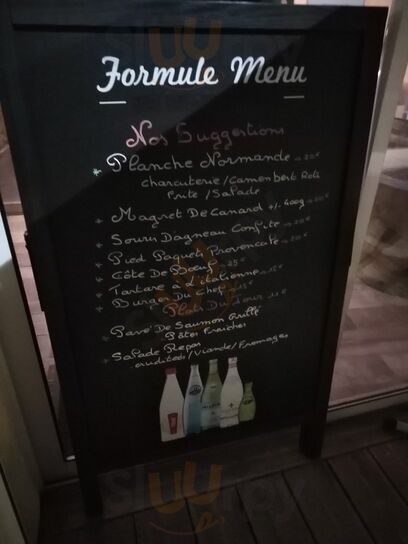 Formule Menu
Nos Suggestions
* Planche Normande
charcuterie/Camembert Roti
Frite/Salade
* Magret De Canard +/- 400g
* Souris D'agneau Confite
* Pied Paquet Provencale
* Côte De Boeuf 25€
* Tartare à L'italienne
* Burger Du Chef 15€
Plat Du Jour 11€
* Pavé De Saumon Grillé
Pâtes Fraiches
* Salade Repas
crudités/Viande/Fromages